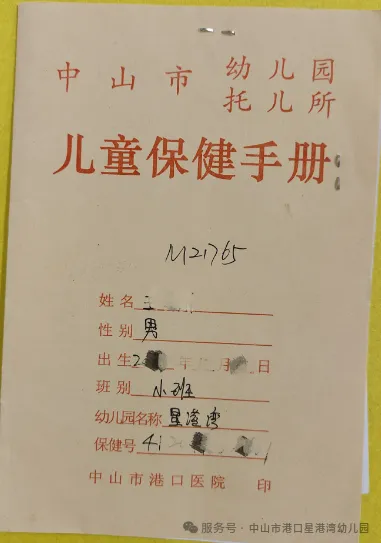 中山市 幼儿园
托儿所
儿童保健手册
M21765
姓名
性别 男
出生 2 年 月 日
班别 小班
幼儿园名称 星港湾
保健号 41
中山市港口医院 印
服务号 · 中山市港口星港湾幼儿园